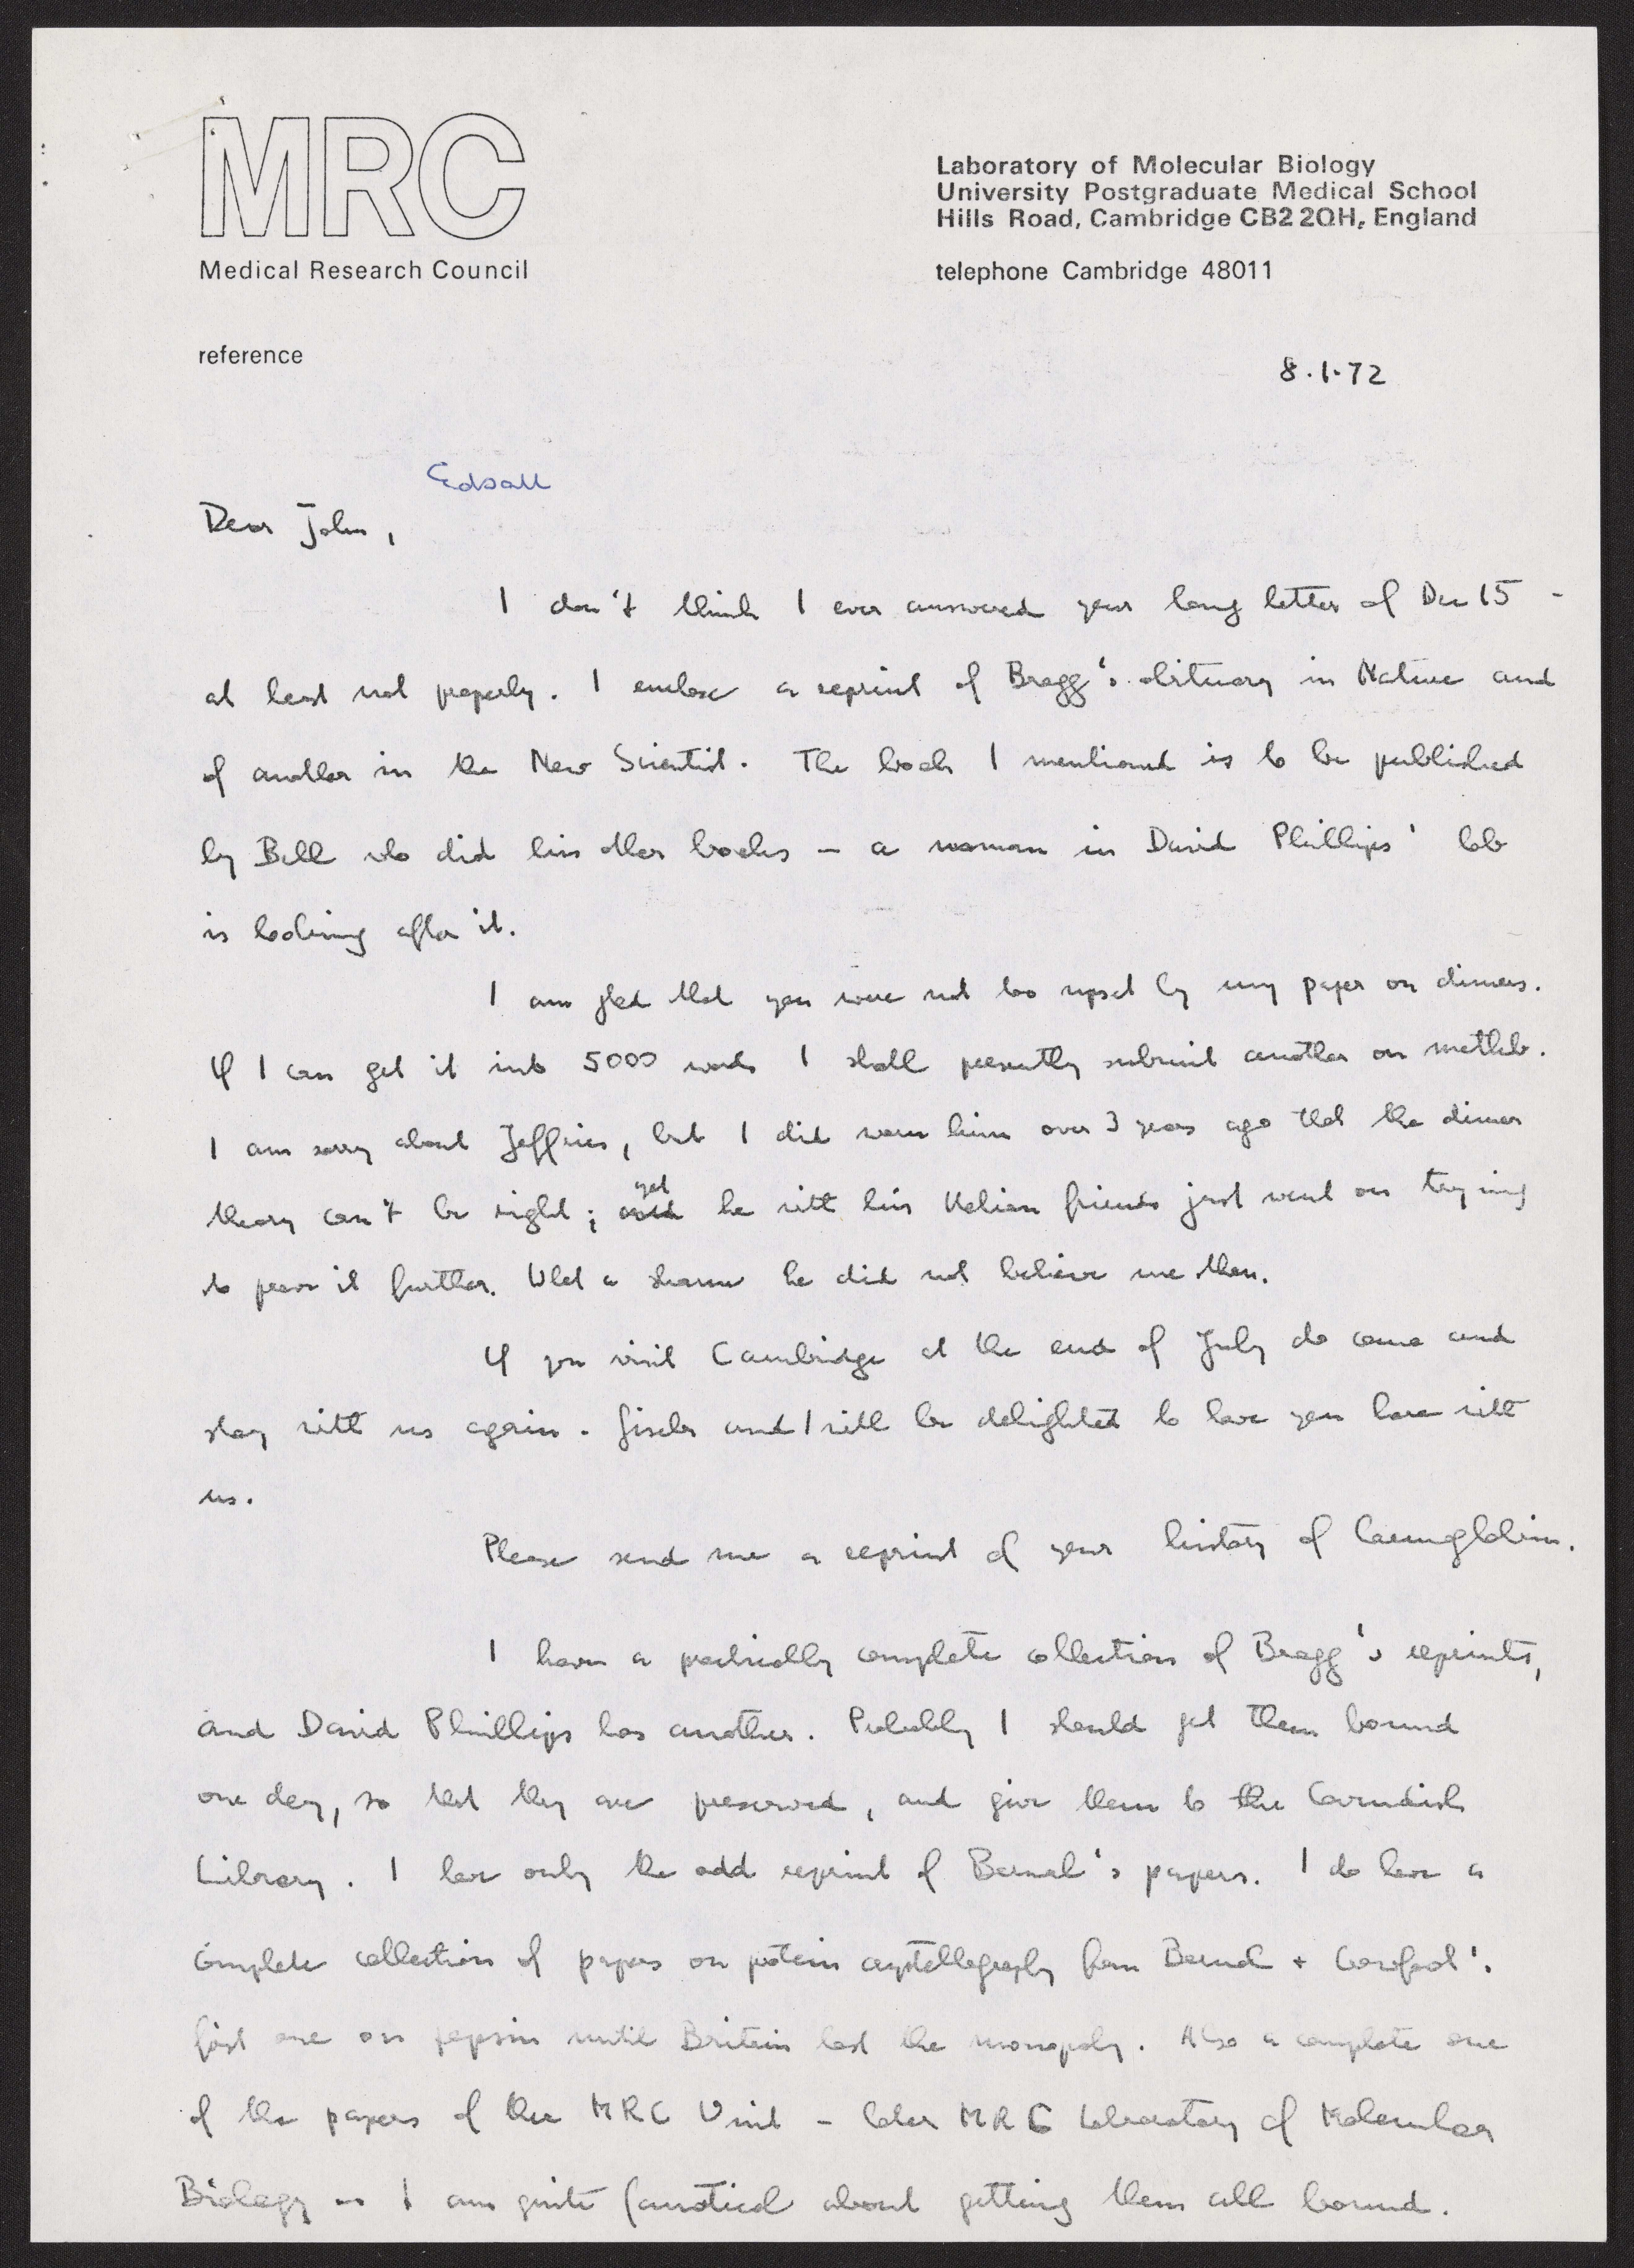 MRC
Medical Research Council
Laboratory of Molecular Biology
University Postgraduate Medical School
Hills Road, Cambridge CB2 2QH, England
telephone Cambridge 48011
reference
8.1.72
Edsall
Dear John,
I don't think I ever answered your long letter of Dec 15 -
at least not properly. I enclose a reprint of Bragg's obituary in Nature and
of another in the New Scientist. The book I mentioned is to be published
by Bell who did his other books – a woman in David Phillips' lab
is looking after it.
I am glad that you were not too upset by my paper on dimers.
If I can get it into 5000 words I shall presently submit another on methb.
I am sorry about Jeffries, but I did warn him over 3 years ago that the dimer
theory can't be right; yet he with his Italian friends just went on trying
to prove it further. What a shame he did not believe me then.
If you visit Cambridge at the end of July do come and
stay with us again. Gisela and I will be delighted to have you here with
us.
Please send me a reprint of your history of haemoglobin.
I have a practically complete collection of Bragg's reprints,
and David Phillips has another. Probably I should get them bound
one day, so that they are preserved, and give them to the Cavendish
Library. I have only the odd reprint of Bernal's papers. I do have a
complete collection of papers on protein crystallography from Bernal + Crowfoot's
first one on pepsin until Britain lost the monopoly. Also a complete one
of the papers of the MRC Unit – later MRC Laboratory of Molecular
Biology – I am quite fanatical about getting them all bound.